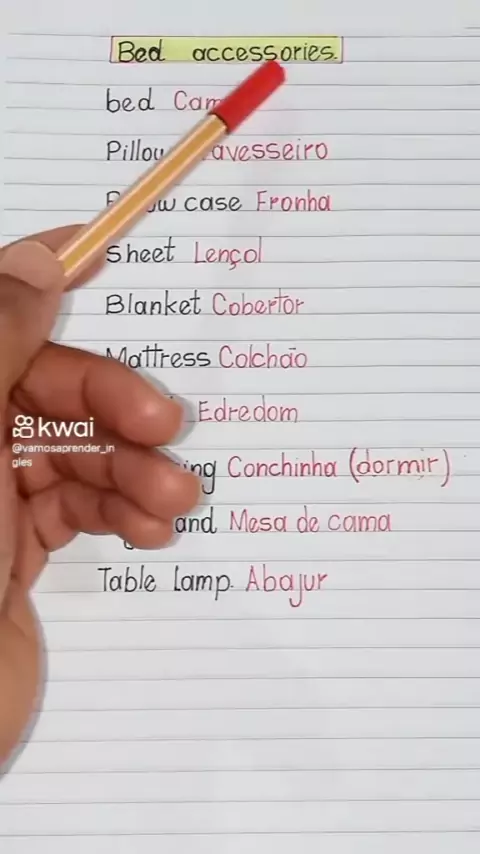 Bed accessories.
bed
Travesseiro
case Fronha
Sheet Lençol
Blanket Cobertor
Mattress Colchão
Edredom
Conchinha (dormir)
Mesa de cama
Table lamp. Abajur
kwai
@vamosaprender_in
gles